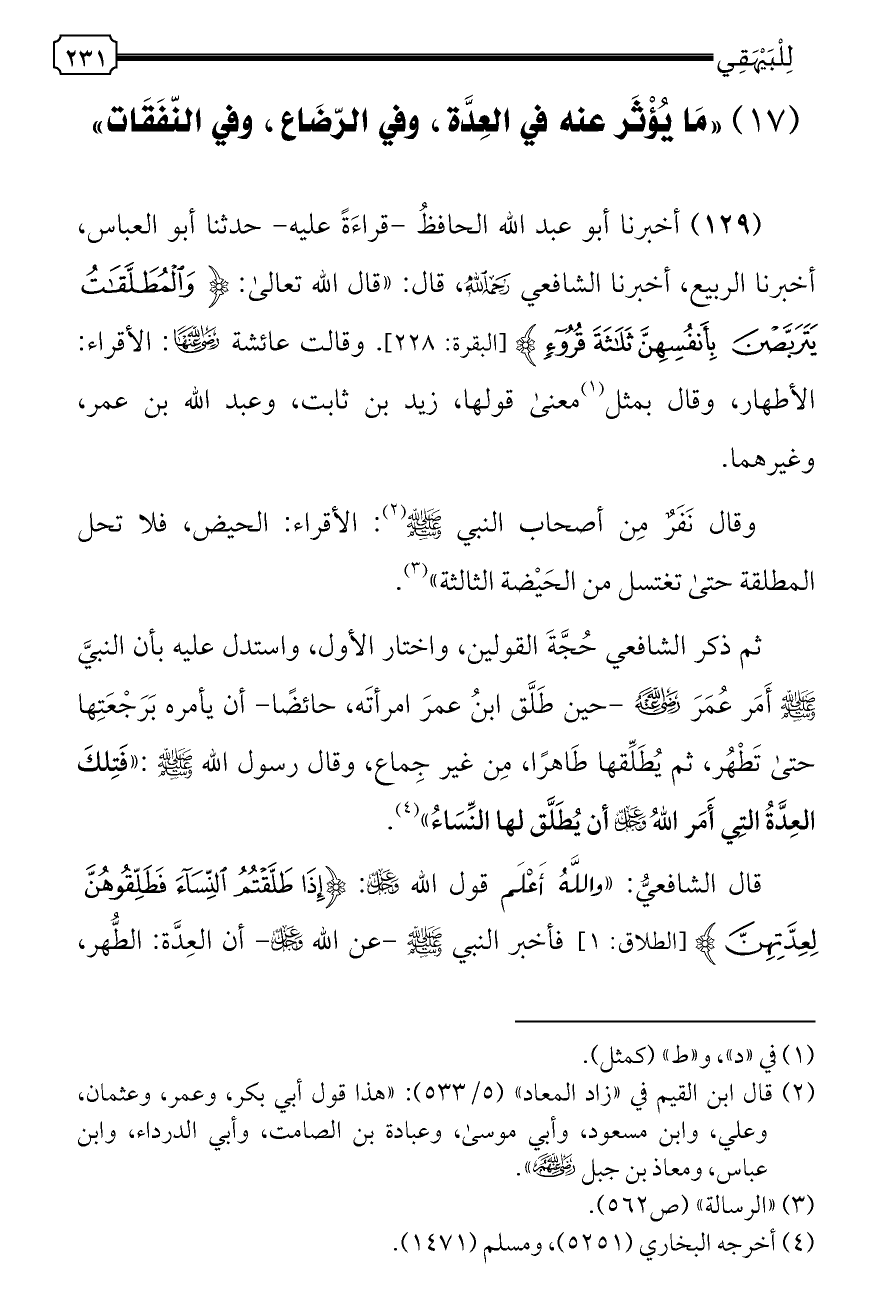 لِلْبَيْهَقِي
٢٣١
(١٧) «مَا يُؤْثَر عنه في العِدَّة، وفي الرّضَاع، وفي النّفَقَات»
(١٢٩) أخبرنا أبو عبد الله الحافظُ -قراءَةً عليه- حدثنا أبو العباس،
أخبرنا الربيع، أخبرنا الشافعي رَحِمَهُ ٱللَّهُ، قال: «قال الله تعالىٰ: ﴿ وَٱلْمُطَلَّقَٰتُ
يَتَرَبَّصْنَ بِأَنفُسِهِنَّ ثَلَٰثَةَ قُرُوٓءٍ ﴾ [البقرة: ٢٢٨]. وقالت عائشة رَضِيَ ٱللَّهُ عَنْهَا: الأقراء:
الأطهار، وقال بمثل(١)معنىٰ قولها، زيد بن ثابت، وعبد الله بن عمر،
وغيرهما.
وقال نَفَرٌ مِن أصحاب النبي ﷺ(٢): الأقراء: الحيض، فلا تحل
المطلقة حتىٰ تغتسل من الحَيْضة الثالثة»(٣).
ثم ذكر الشافعي حُجَّةَ القولين، واختار الأول، واستدل عليه بأن النبيَّ
ﷺ أَمَر عُمَرَ رَضِيَ ٱللَّهُ عَنْهُ -حين طَلَّق ابنُ عمرَ امرأتَه، حائضًا- أن يأمره بَرَجْعَتِها
حتىٰ تَطْهُر، ثم يُطَلِّقها طَاهرًا، مِن غير جِماع، وقال رسول الله ﷺ :«فَتِلكَ
العِدَّةُ التِي أَمَر اللهُ عَزَّوَجَلَّ أن يُطَلَّق لها النِّسَاءُ»(٤).
قال الشافعيُّ: «واللَّهُ أَعْلَم قول الله عَزَّوَجَلَّ: ﴿إِذَا طَلَّقْتُمُ ٱلنِّسَآءَ فَطَلِّقُوهُنَّ
لِعِدَّتِهِنَّ ﴾ [الطلاق: ١] فأخبر النبي ﷺ -عن الله عَزَّوَجَلَّ- أن العِدَّة: الطُّهر،
(١) في «د»، و«ط» (كمثل).
(٢) قال ابن القيم في «زاد المعاد» (٥/ ٥٣٣): «هذا قول أبي بكر، وعمر، وعثمان،
وعلي، وابن مسعود، وأبي موسىٰ، وعبادة بن الصامت، وأبي الدرداء، وابن
عباس، ومعاذ بن جبل رَضِيَ ٱللَّهُ عَنْهُمْ».
(٣) «الرسالة» (ص٥٦٢).
(٤) أخرجه البخاري (٥٢٥١)، ومسلم (١٤٧١).